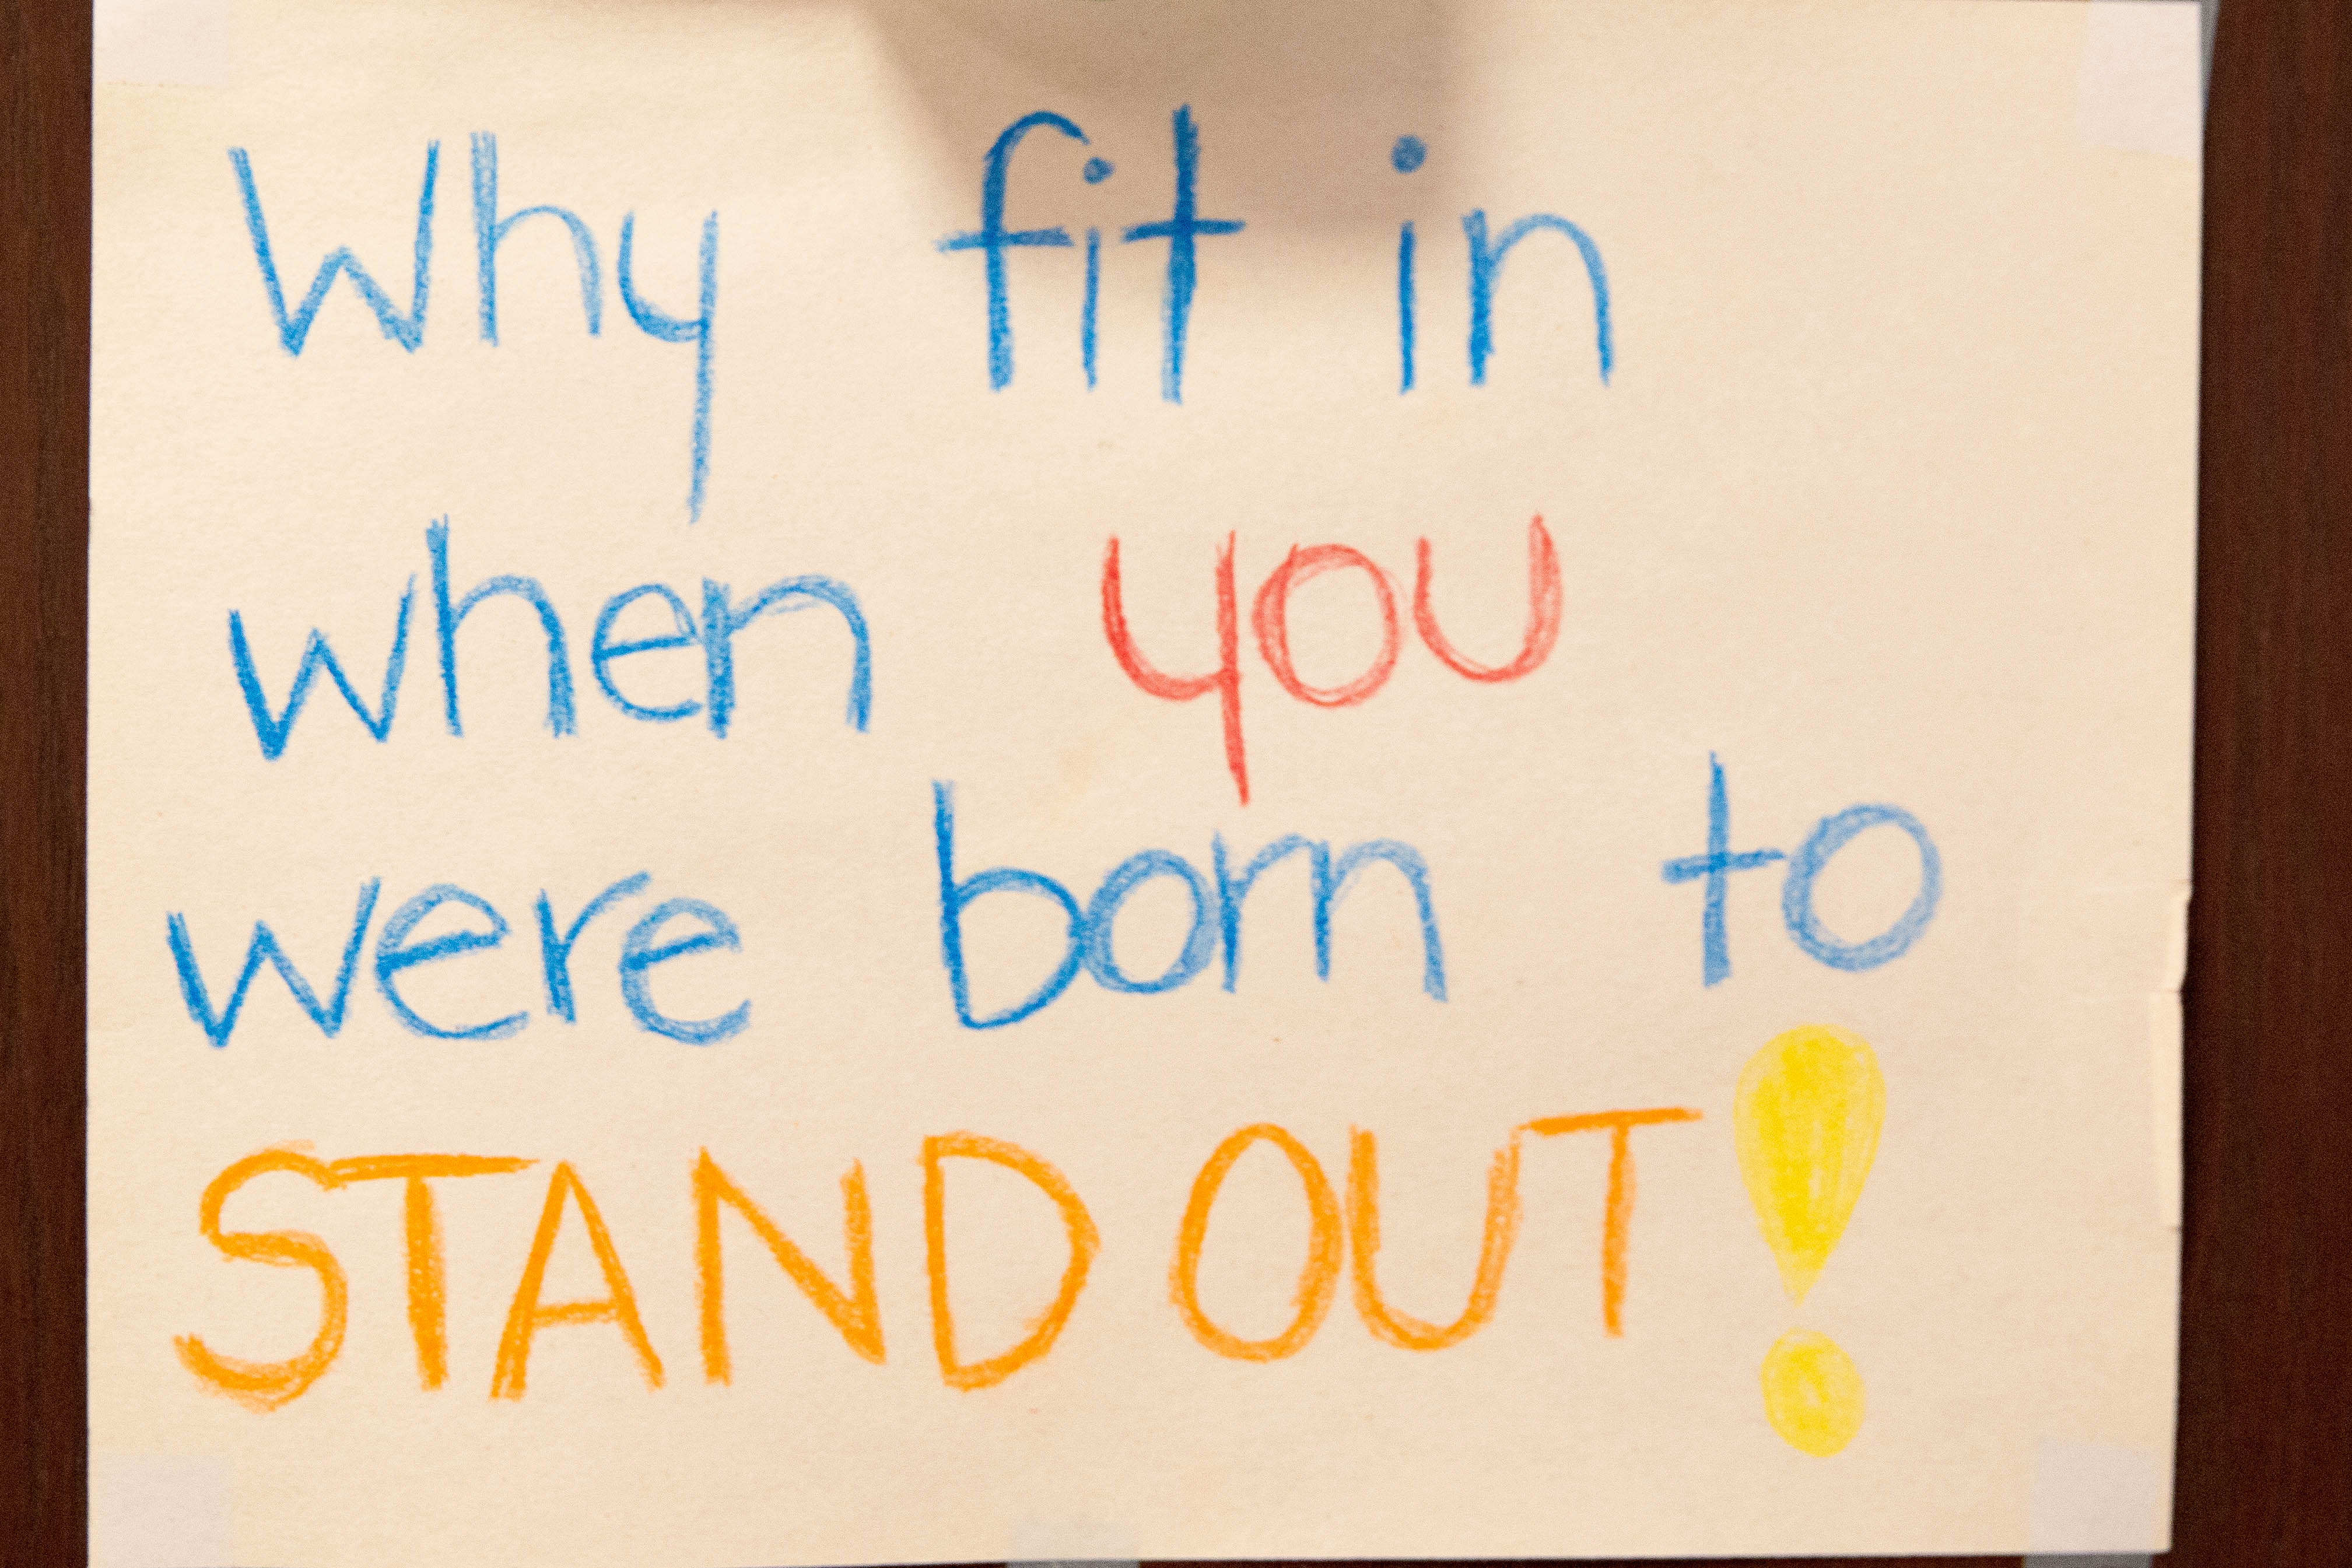 Why fit in
when you
were born to
STAND OUT!